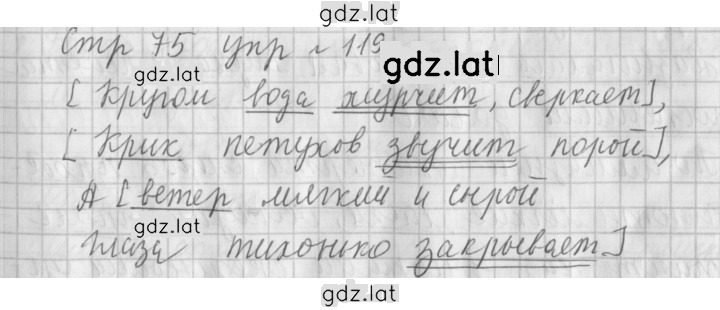 gdz.lat
Стр 75 упр № 119
gdz.lat
gdz.lat
[Кругом вода журчит, сверкает],
[Крик петухов звучит порой],
А [ветер мягкий и сырой
gdz.lat
Глаза тихонько закрывает.]
gdz.lat
gdz.lat